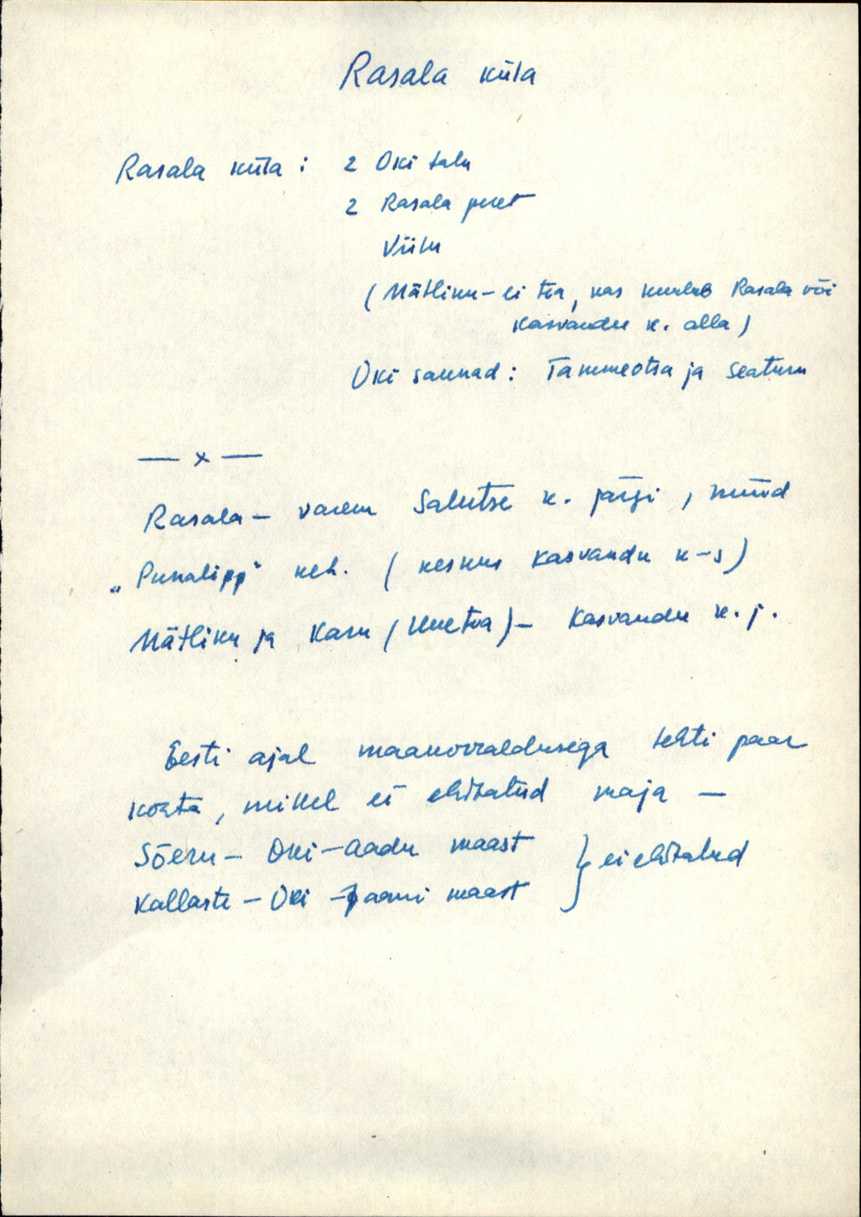 Rasala küla
Rasala küla : 2 Oki talu
2 Rasala peret
Viilu
(Mätliku - ei tea, kas kuulub Rasala või
Kasvandu k. alla)
Oki saunad : Tammeotsa ja Seaturu
— x —
Rasala - varem Salutse k. järgi, nüüd
„Punalipp" kolh. (keskus Kasvandu k-s)
Mätliku ja Karu ( ) - Kasvandu k. j.
Eesti ajal maakorraldusega tehti paar
kohta, millel ei ehitatud maja —
Sõeru - Oki-Aadu maast } ei ehitatud
Kallaste - Oki-Jaani maast